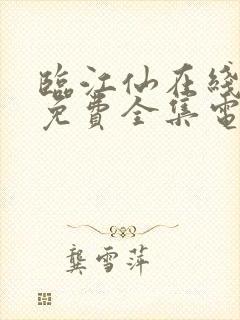 臨江仙在綫
免費全集電
龔雪萍